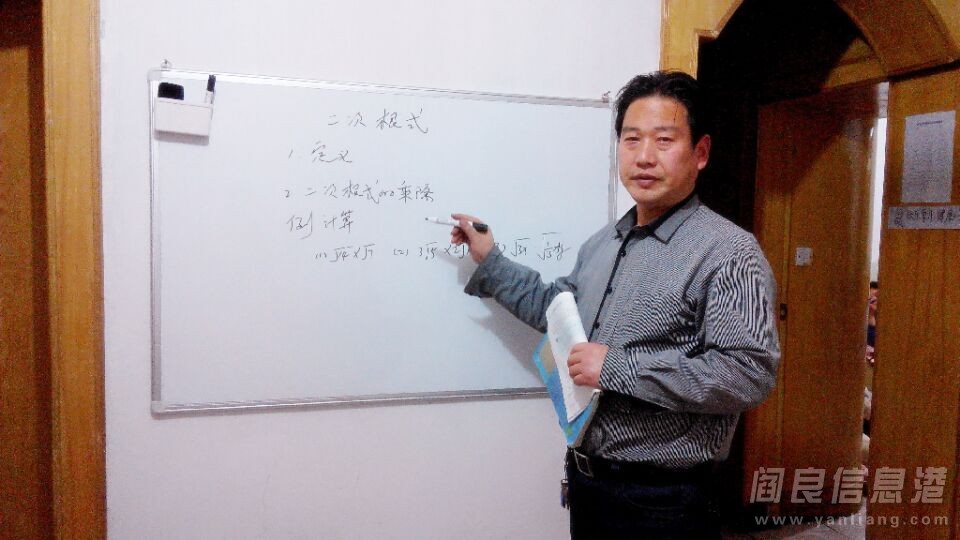 二次根式
1. 定义
2 二次根式的乘除
例 计算
(1) √4×√7 (2) 3√5×2√
阎良信息港
www.yanliang.com